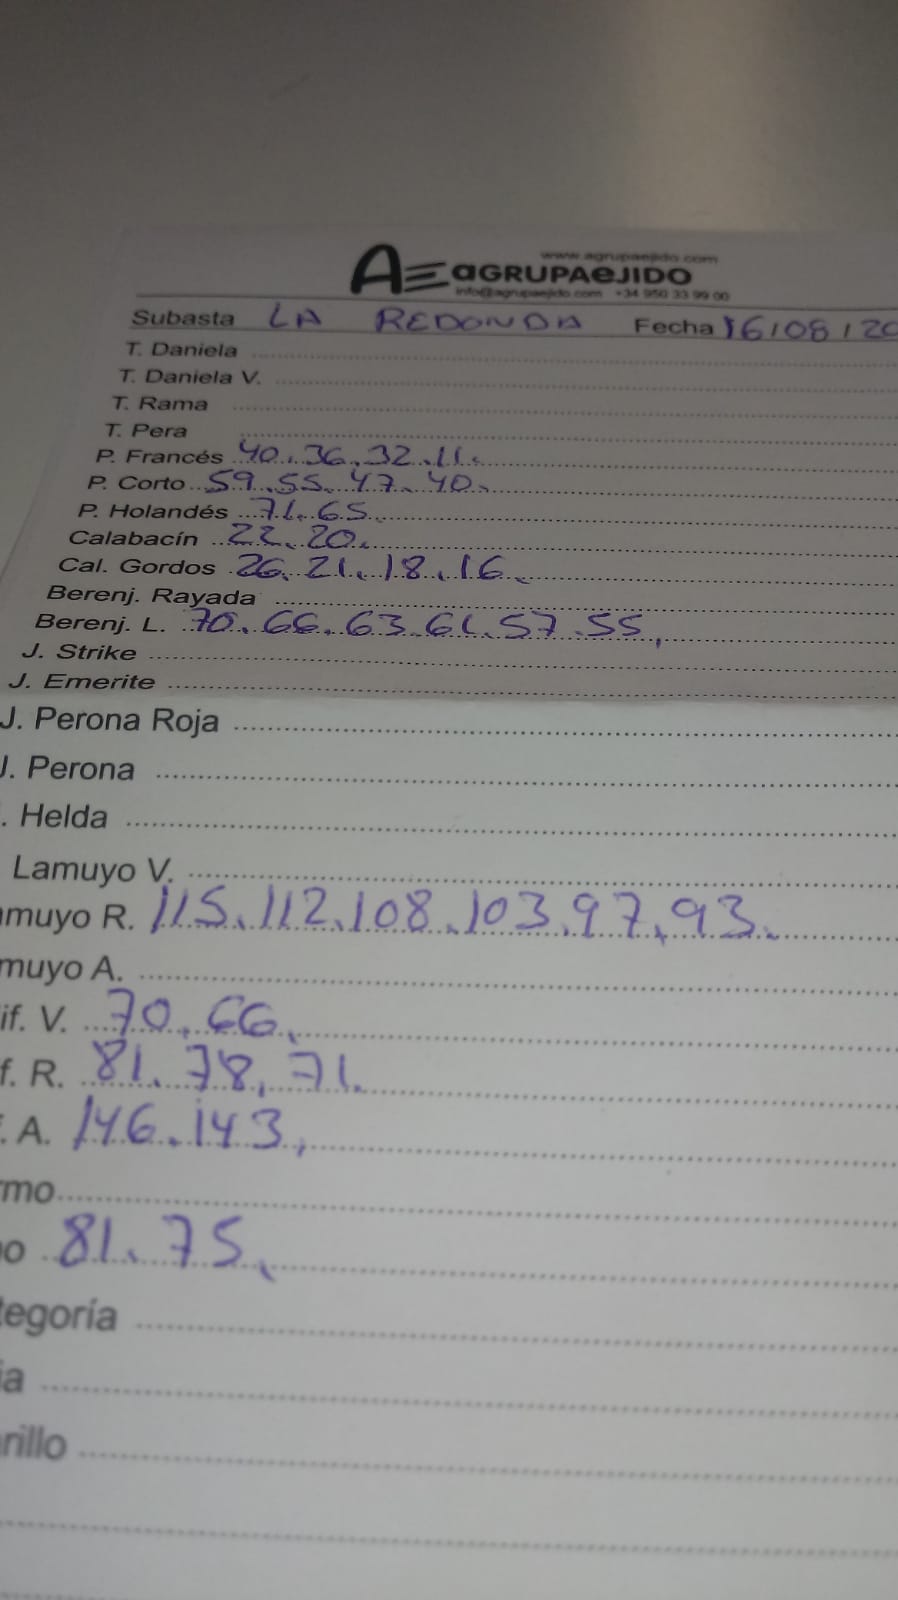 www.agrupaejido.com
AGRUPAEJIDO
info@agrupaejido.com +34 950 33 99 00
Subasta LA REDONDA Fecha 16/08/20
T. Daniela
T. Daniela V.
T. Rama
T. Pera
P. Francés 40. 36. 32. 11.
P. Corto 59. 55. 47. 40.
P. Holandés 71. 65.
Calabacín 22. 20.
Cal. Gordos 26. 21. 18. 16.
Berenj. Rayada
Berenj. L. 70. 66. 63. 61. 57. 55.
J. Strike
J. Emerite
J. Perona Roja
J. Perona
. Helda
Lamuyo V.
muyo R. 115. 112. 108. 103. 97. 93.
muyo A.
if. V. 70. 66.
f. R. 81. 78, 71.
. A. 146. 143,
rmo
o 81. 75.
tegoría
ia
rillo